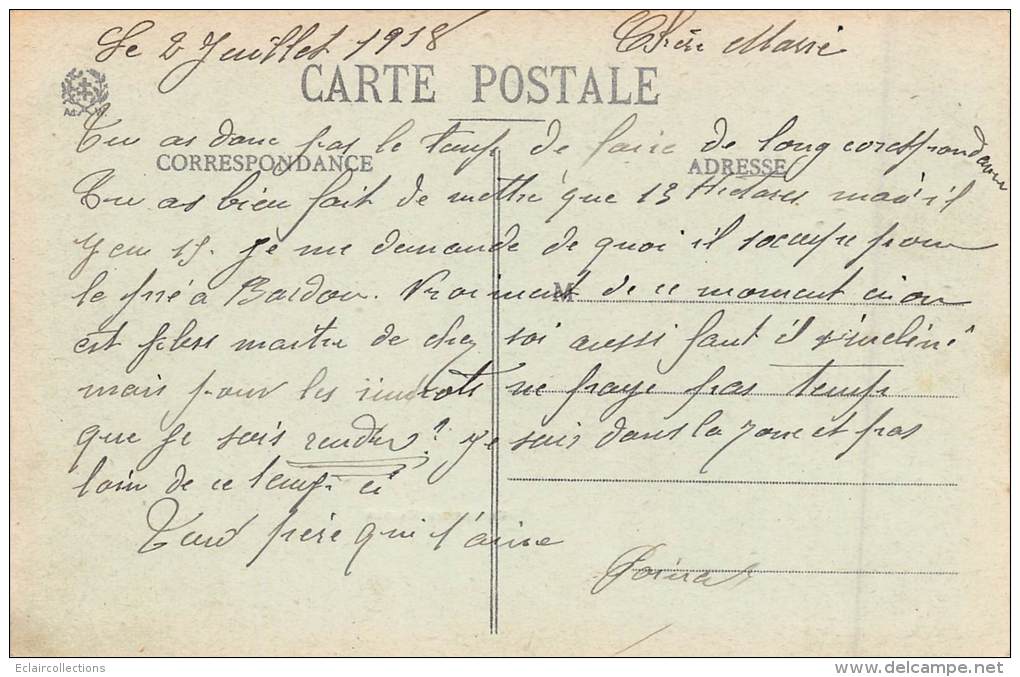 Le 2 Juillet 1918 Chère Marie
CARTE POSTALE
Tu as donc pas le temp de faire de long correspondance
CORRESPONDANCE ADRESSE
Tu as bien fait de mettre que 13 Hectares mais il
y en 15. Je me demande de quoi il socupe pour
le pré a Bardou. Vraiment de ce moment ci on
M
est plus maitre de chez soi aussi faut il s'incliné
mais pour les ne paye pas temp
que je sois rendu? Je suis dans la zone et pas
loin de ce temp ci
Tout frère qui t'aime
Eclaircollections
http://eclaircollections.delcampe.net